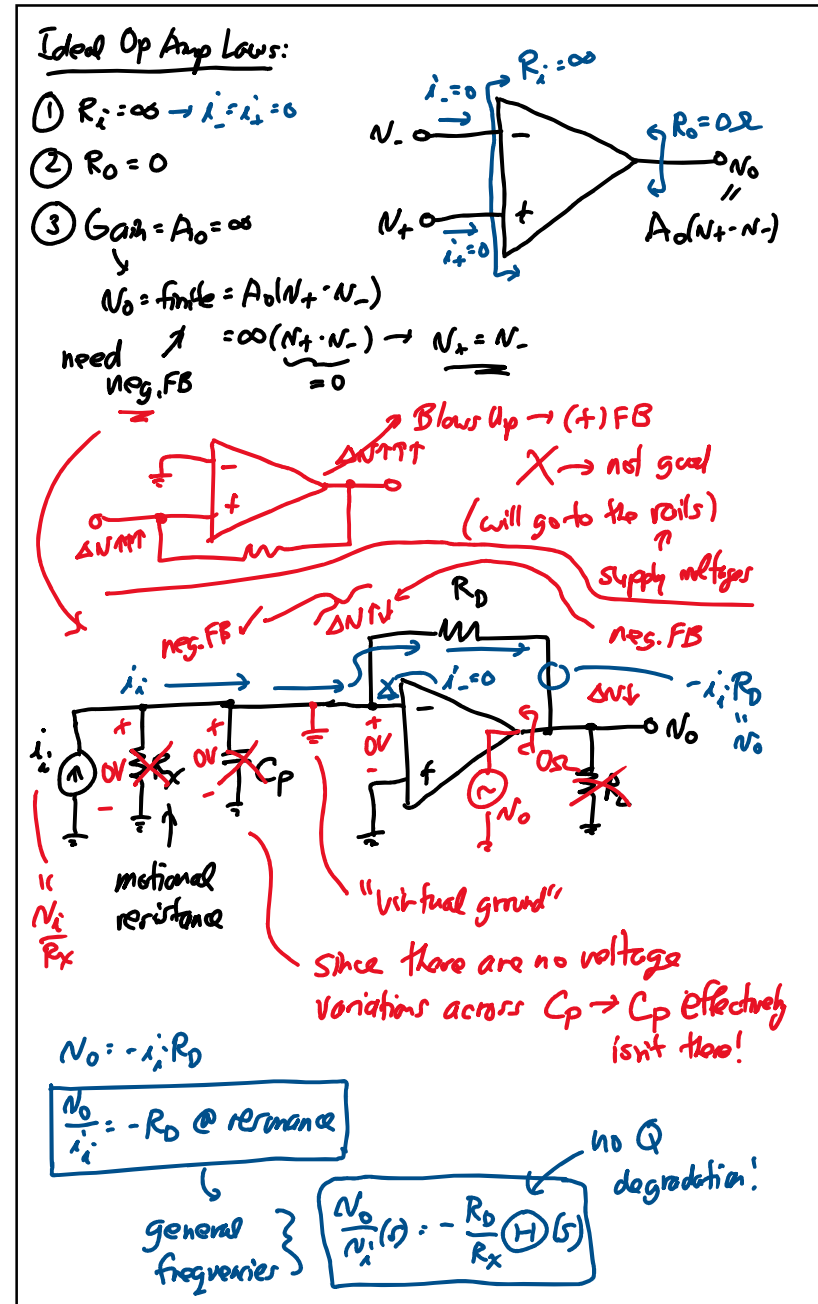 Ideal Op Amp Laws:
① Rᵢ = ∞ → i₋ = i₊ = 0
② R₀ = 0
③ Gain = A₀ = ∞
v₀ = finite = A₀(v₊ - v₋)
= ∞(v₊ - v₋) → v₊ = v₋
= 0
need
neg. FB
i₋ = 0
Rᵢ = ∞
v₋
-
R₀ = 0Ω
v₀
"
A₀(v₊ - v₋)
v₊
+
i₊ = 0
Blows Up → (+) FB
Δv↑↑↑
X → not good
(will go to the rails)
↑
supply voltages
-
+
Δv↑↑↑
neg. FB ✓
Δv↑↓
R_D
neg. FB
iᵢ
i₋ = 0
Δv↓
-iᵢR_D
"
v₀
iᵢ
+
0V
-
Rₓ
+
0V
-
C_p
+
0V
-
-
+
0Ω
v₀
R_L
v₀
"
vᵢ
Rₓ
motional
resistance
"virtual ground"
since there are no voltage
variations across C_p → C_p effectively
isn't there!
v₀ = -iᵢR_D
v₀/iᵢ = -R_D @ resonance
general
frequencies
v₀/vᵢ (s) = - R_D/Rₓ Ⓗ(s)
no Q
degradation!